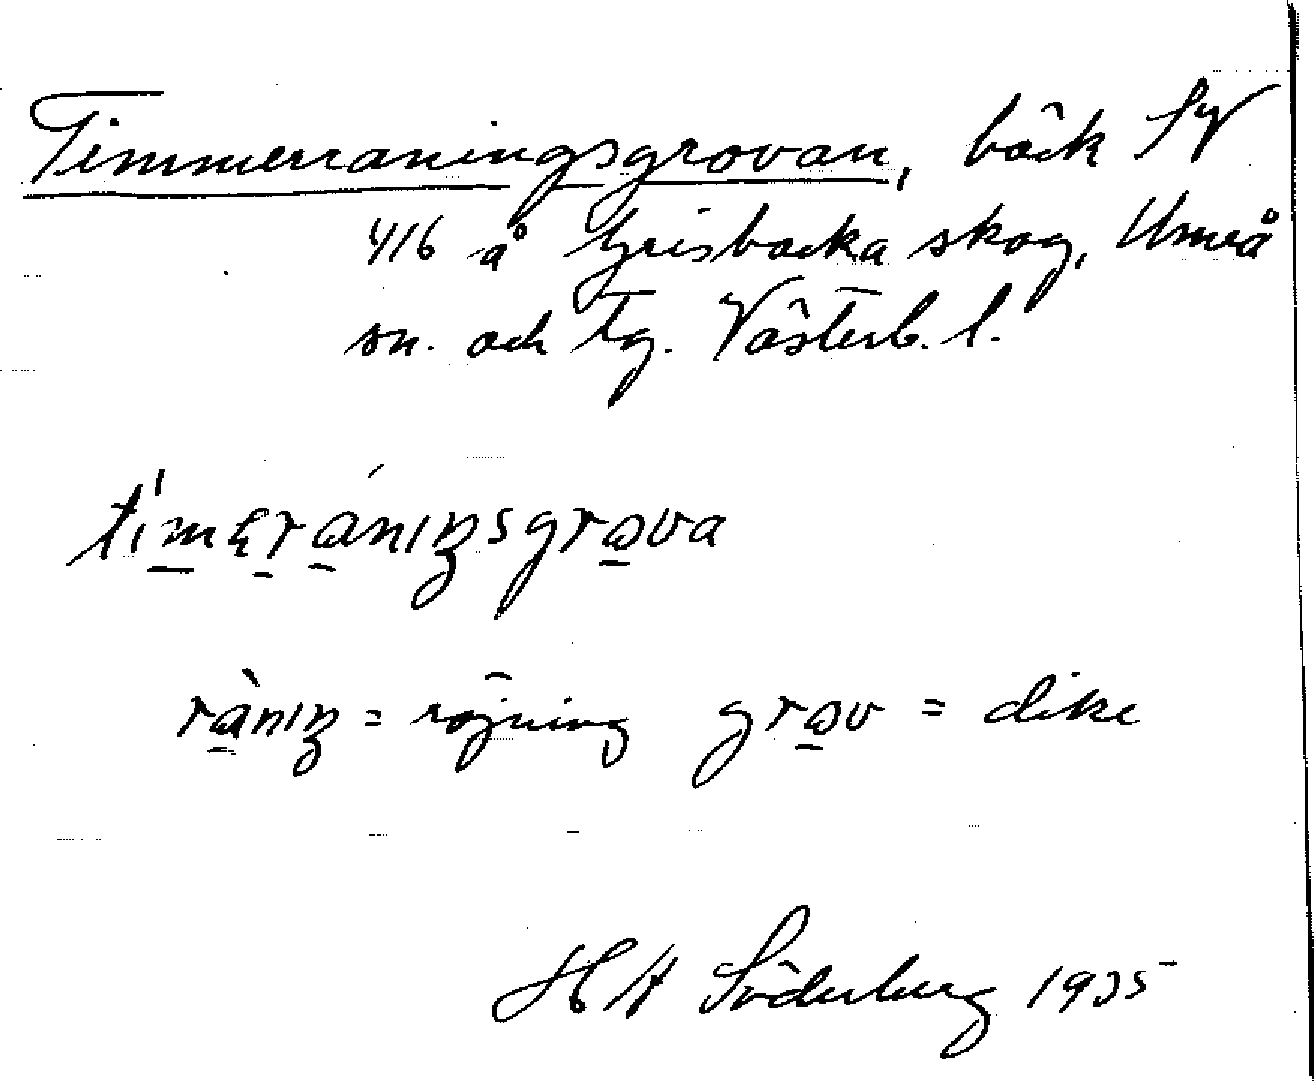 Timmerraningsgrovan, bäck SV
416 å Grisbacka skog, Umeå
sn. och tg. Västerb. l.
timęrániŋsgrova
ràniŋ = röjning grov = dike
H H Söderberg 1935